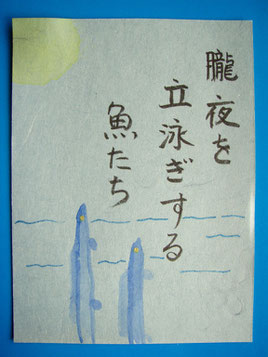 朧夜を
立泳ぎする
魚たち